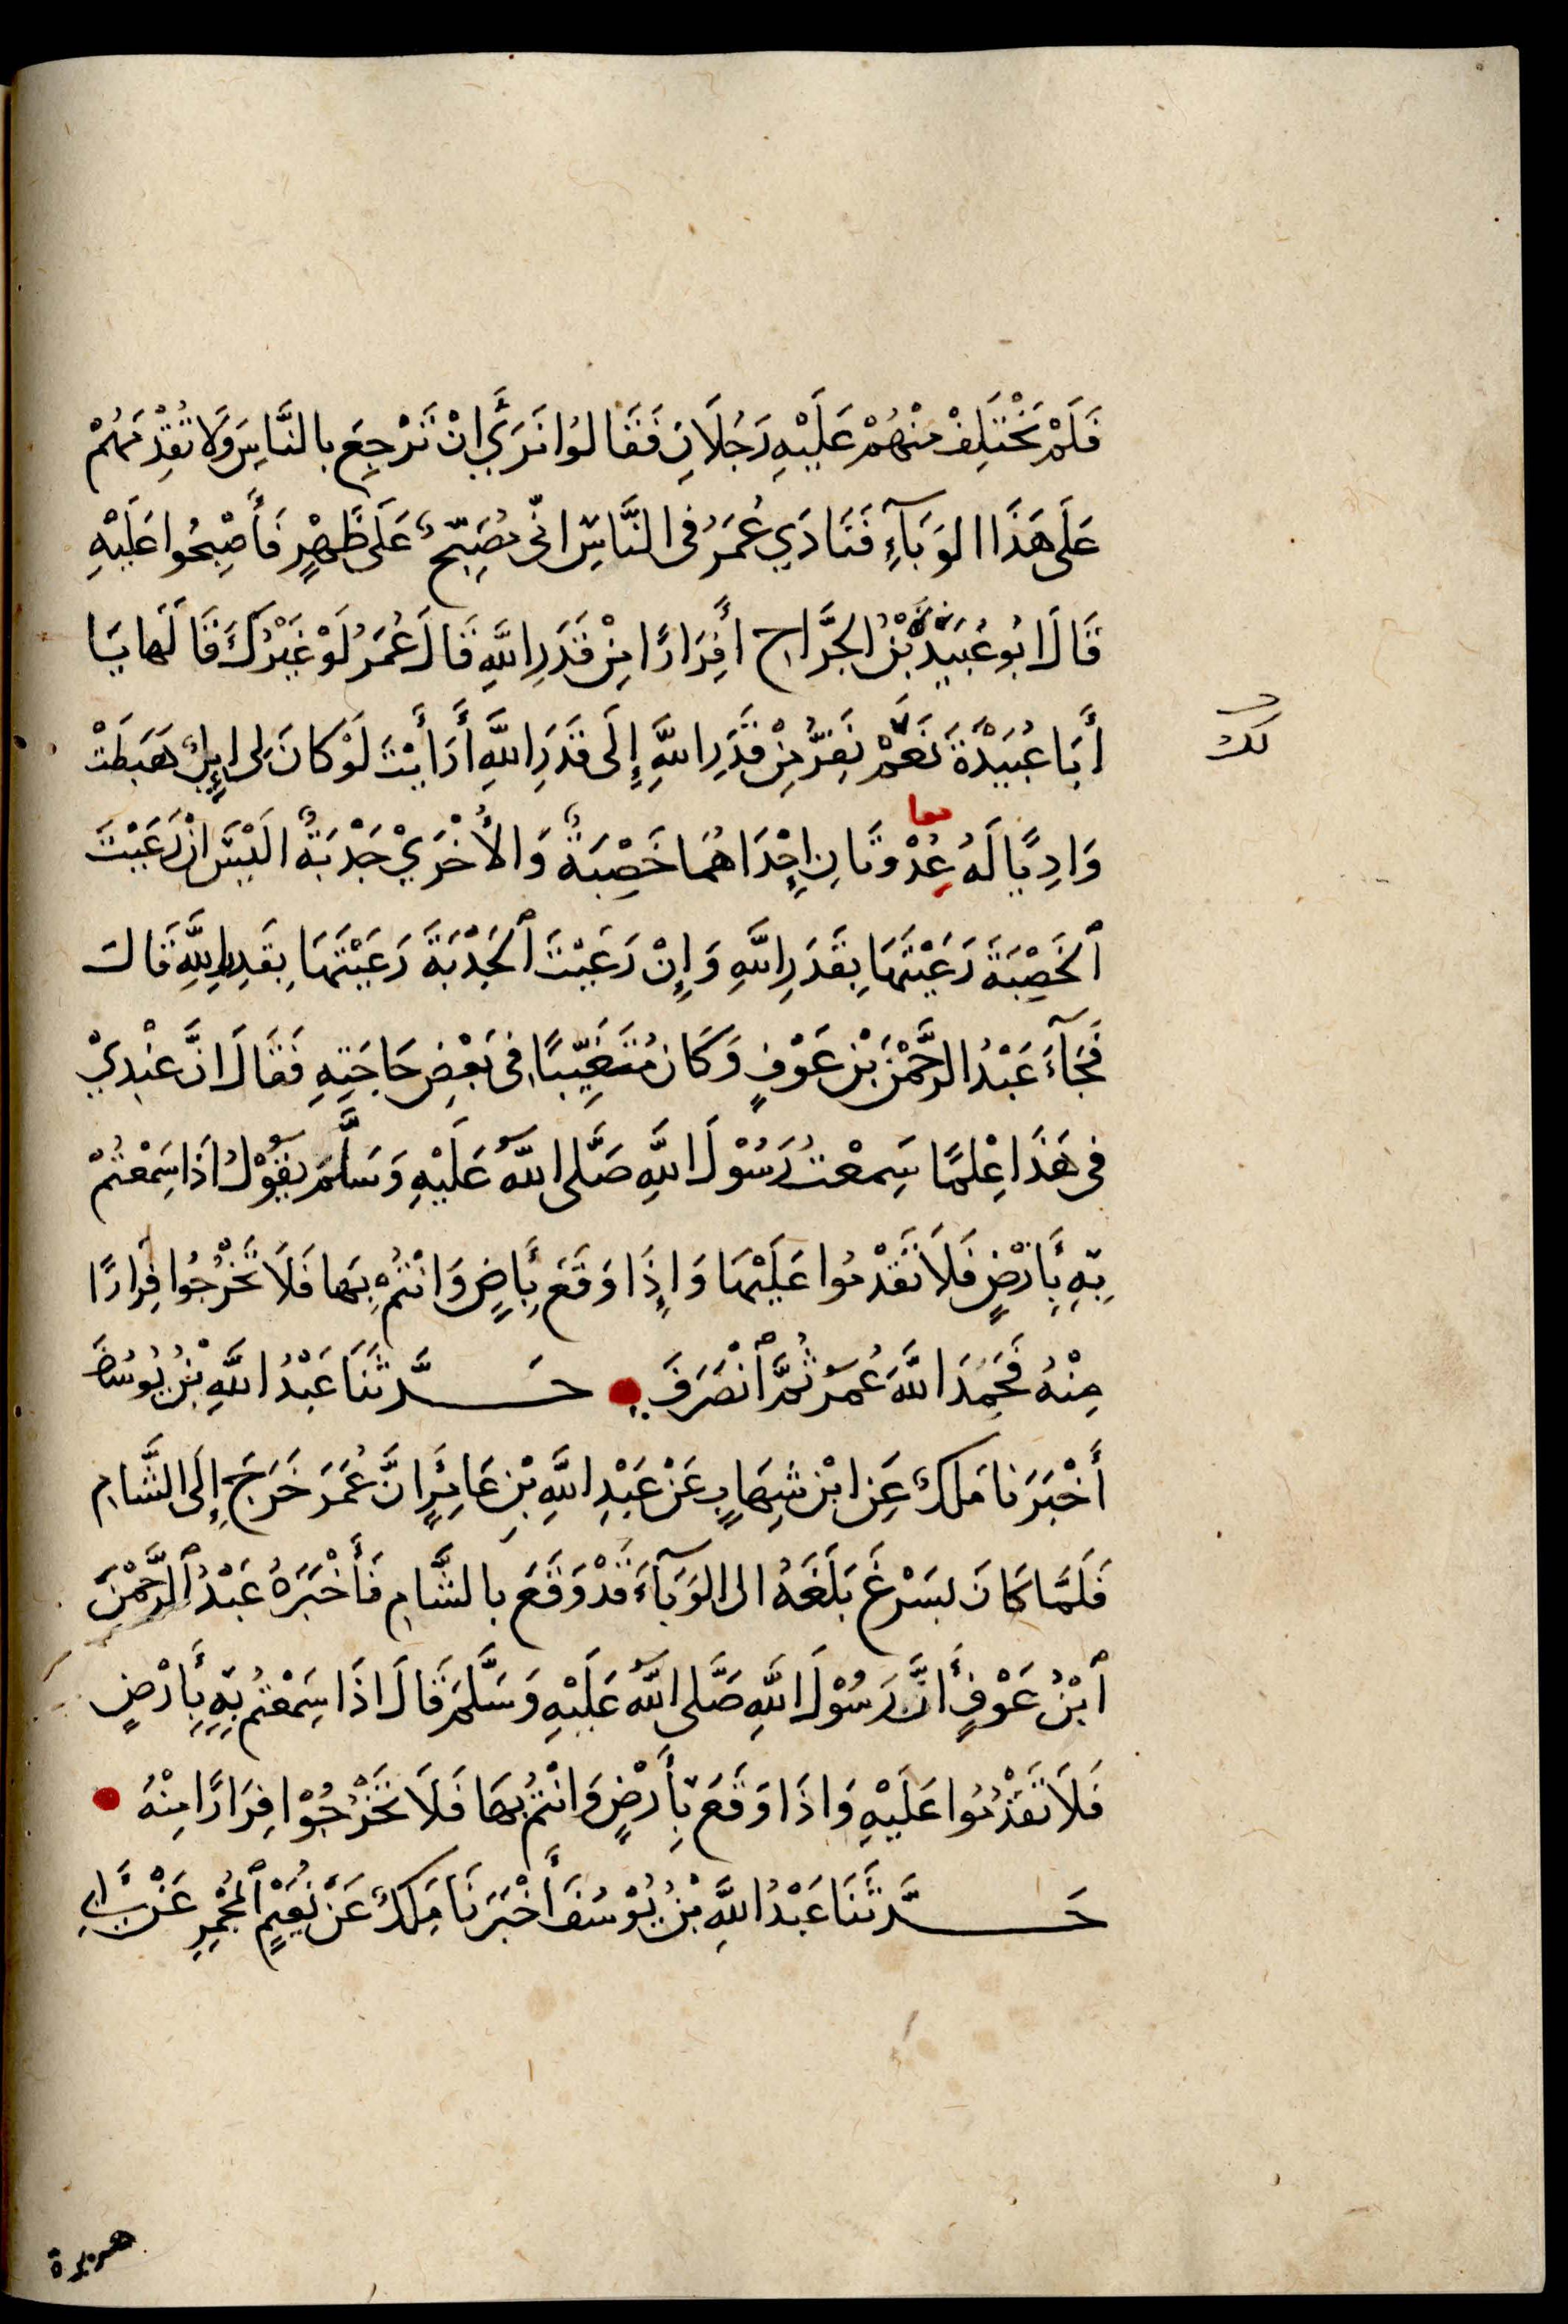 فَلَمْ يَخْتَلِفْ مِنْهُمْ عَلَيْهِ رَجُلَانِ فَقَالُوا نَرَي أَنْ تَرْجِعَ بِالنَّاسِ وَلَا تُقْدِمَهُمْ
عَلَى هَذَا الوَبَآءِ فَنَادَي عُمَرُ فى النَّاسِ انّى مُصَبِّحٌ عَلَى ظَهْرٍ فَأَصْبِحُوا عَلَيْهِ
قَالَ ابُو عُبَيْدَةَ بْنُ الجَرَّاحِ أَفِرَارًا مِنْ قَدَرِ اللَّهِ فَقَالَ عُمَرُ لَوْ غَيْرُكَ قَالَهَا يَا
أَبَا عُبَيْدَةَ نَعَمْ نَفِرُّ مِنْ قَدَرِ اللَّهِ إِلَى قَدَرِ اللَّهِ أَرَأَيْتَ لَوْ كَانَ لى إِبِلٌ هَبَطَتْ
لك
معا
وَادِيًا لَهُ عُِدْوَتَانِ إِحْدَاهُمَا خَصِبَةٌ وَالأُخْرَيْ جَدْبَةٌ الَيْسَ انْ رَعَيْتَ
ٱلخَصْبَةَ رَعَيْتَهَا بِقَدَرِ اللَّهِ وَإِنْ رَعَيْتَ ٱلجَدْبَةَ رَعَيْتَهَا بِقَدَرِ اللَّهِ قَالَ
فَجَآءَ عَبْدُ الرَّحْمَنِ بْن عَوْفٍ وَكَانَ مُتَغَيِّبًا فى بَعْضِ حَاجَتِهِ فَقَالَ انَّ عِنْدِيْ
فى هَذَا عِلْمًا سَمِعْتُ رَسُوْلَ اللَّهِ صَلَّى اللَّهُ عَلَيْهِ وَسَلَّمَ يَقُوْلُ اذَا سَمِعْتُمْ
بِهِ بِأَرْضٍ فَلَا تَقْدَمُوا عَلَيْهَا وَإِذَا وَقَعَ بِأَرضٍ وَانْتُمْ بِهَا فَلَا تَخْرُجُوا فِرَارًا
مِنْهُ فَحَمِدَ اللَّهَ عُمَرُ ثُمَّ ٱنْصَرَفَ حَدَّثَنَا عَبْدُ اللَّهِ بْنُ يُوسُفَ
أَخْبَرَنَا مَلِكٌ عَنِ ابْنِ شِهَابٍ عَنْ عَبْدِ اللَّهِ بْنِ عَامِرٍ أَنَّ عُمَرَ خَرَجَ إِلَى الشَّامِ
فَلَمَّا كَانَ بسَرْغَ بَلَغَهُ ان الوَبَآءَ قَدْ وَقَعَ بالشَّامِ فَأَخْبَرَهُ عَبْدُ ٱلرَّحْمَنِ
ٱبْنُ عَوْفٍ أَنَّ رَسُوْلَ اللَّهِ صَلَّى اللَّهُ عَلَيْهِ وَسَلَّمَ قَالَ اذَا سَمِعْتُمْ بِهِ بِأَرْضٍ
فَلَا تَقْدَمُوا عَلَيْهِ وَاذَا وَقَعَ بِأَرْضٍ وَانْتُمْ بِهَا فَلَا تَخْرُجُوْا فِرَارًا مِنْهُ
حَدَّثَنَا عَبْدُ اللَّهِ بْنُ يُوْسُفَ أَخْبَرَنَا مَلِكٌ عَنْ نُعَيْمٍ ٱلمُجْمِرِ عَنْ أَبِي
هريرة